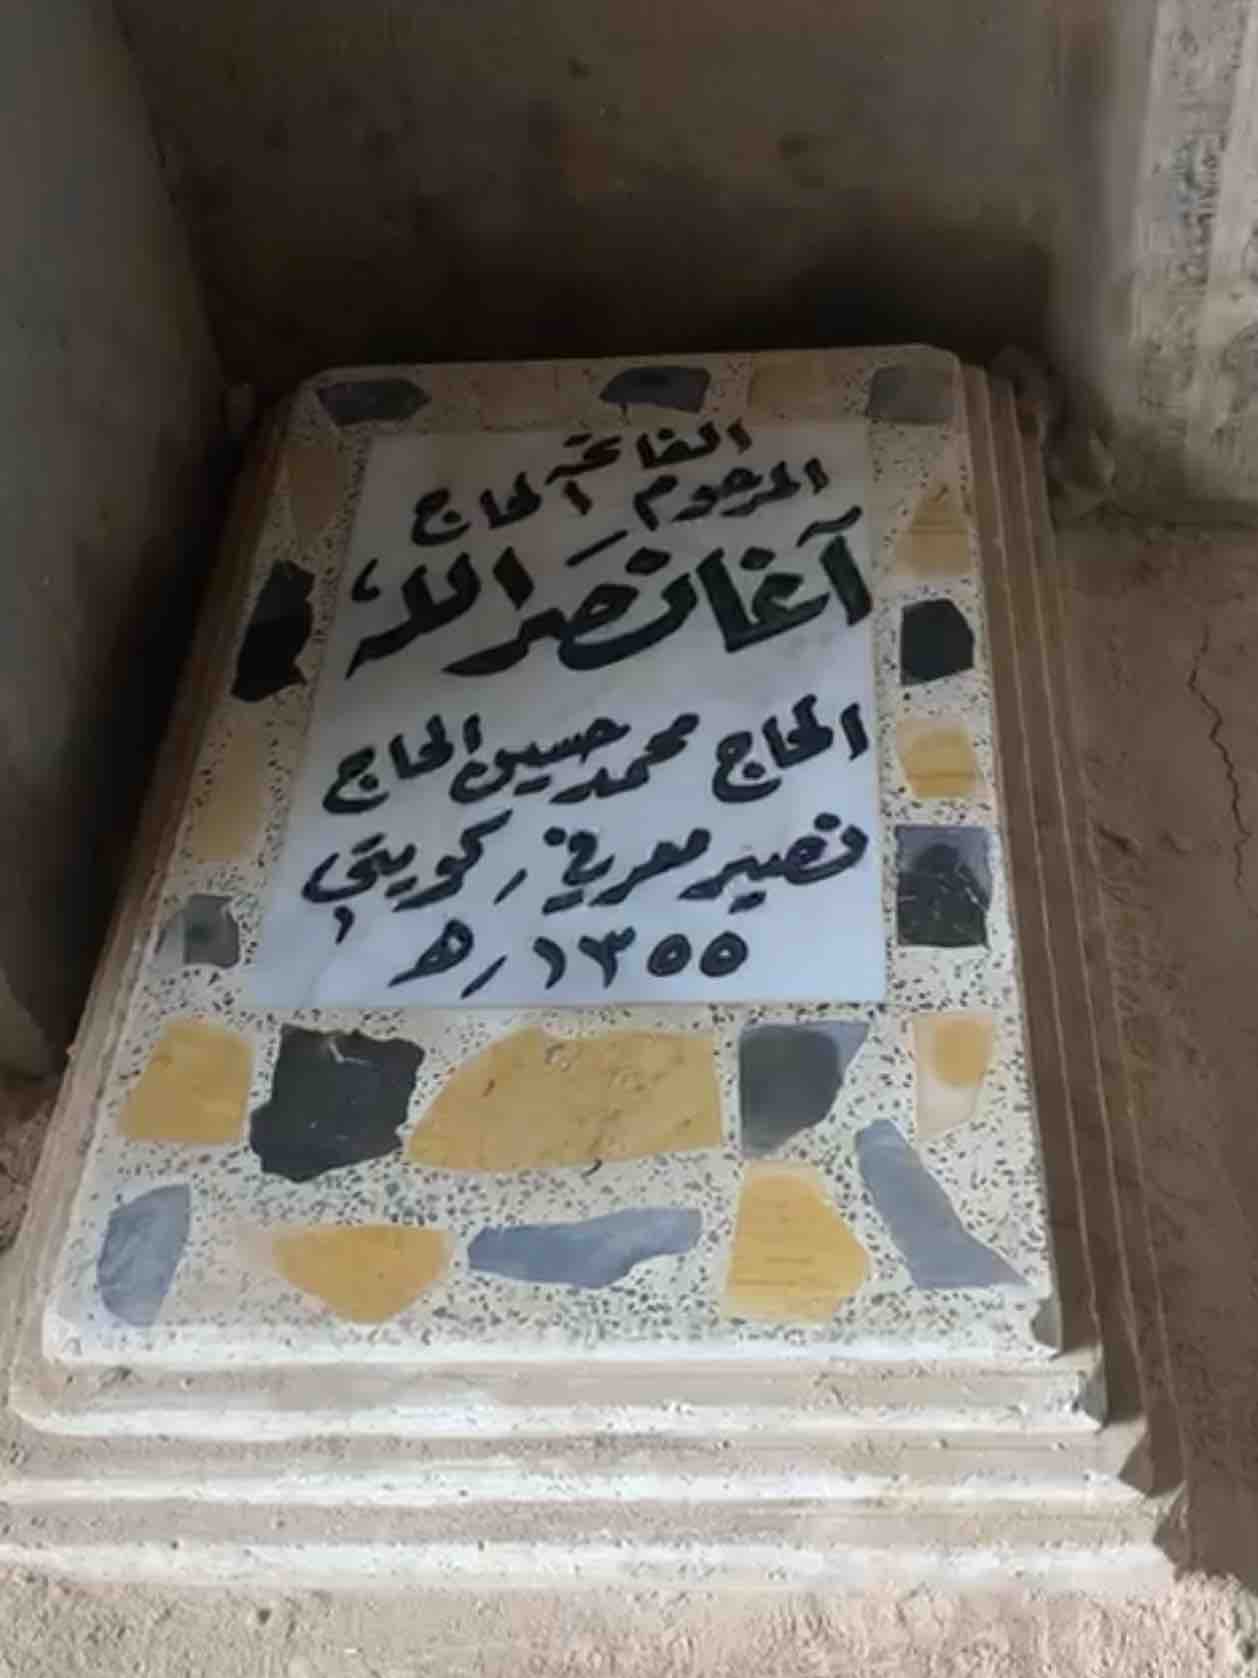 الفاتحة
المرحوم الحاج
آغا نصر الله
الحاج محمد حسين الحاج
نصير معرفي / كويتي
١٣٥٥ / هـ